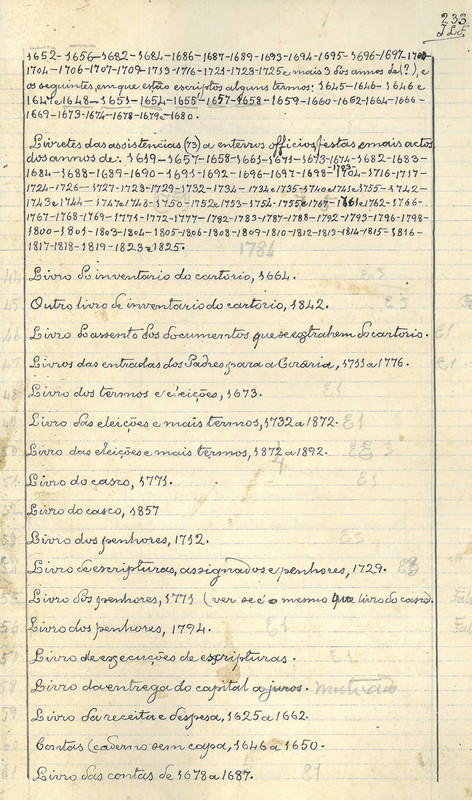 233
1652-1656-1682-1684-1686-1687-1689-1693-1694-1695-1696-1697-1700
1704-1706-1707-1709-1713-1716-1721-1723-1725 e mais 3 dos annos de (?), e
os seguintes, em que estão escriptos alguns termos: 1645-1646-1646 e
1647 e 1648-1653-1654-1655-1657-1658-1659-1660-1662-1664-1666-
1669-1673-1674-1678-1679 e 1680.
Livretes das assistencias (73) a enterros officios, festas e mais actos
dos annos de: 1619-1657-1658-1661-1671-1673-1674-1682-1683-
1684-1688-1689-1690-1691-1692-1696-1697-1698-1703-1704-1716-1717-
1724-1726-1727-1728-1729-1732-1734-1734 e 1735-1740 e 1741-1755-1742-
1743 e 1744-1747 e 1748-1750-1752 e 1753-1754-1755 e 1767-1761 e 1762-1766-
1767-1768-1769-1771-1772-1777-1782-1783-1787-1788-1792-1793-1796-1798-
1800-1801-1803-1804-1805-1806-1808-1809-1810-1812-1813-1814-1815-1816-
1817-1818-1819-1823 e 1825.
1784
44 Livro do inventario do cartorio, 1664. E3
45 Outro livro de inventario do cartorio, 1842. E3
46 Livro do assento dos documentos que se extrahem do cartorio. E1
47 Livros das entradas dos Padres para a Coraria, 1711 a 1776.
48 Livro dos termos e eleições, 1673. E1
49 Livro das eleições e mais termos, 1732 a 1872. E1
50 Livro das eleições e mais termos, 1872 a 1892. E3
4
51 Livro do casco, 1771. E1
52 Livro do casco, 1857
53 Livro dos penhores, 1712. E3
54 Livro de escripturas, assignados e penhores, 1729. E3
55 Livro dos penhores, 1771 (ver se é o mesmo que livro do casco).
56 Livro dos penhores, 1794. E1
57 Livro de execuções de escripturas. E1
58 Livro da entrega do capital a juros.
59 Livro da receita e despesa, 1625 a 1662.
60 Contas (caderno sem capa, 1646 a 1650.
61 Livro das contas de 1678 a 1687. E1